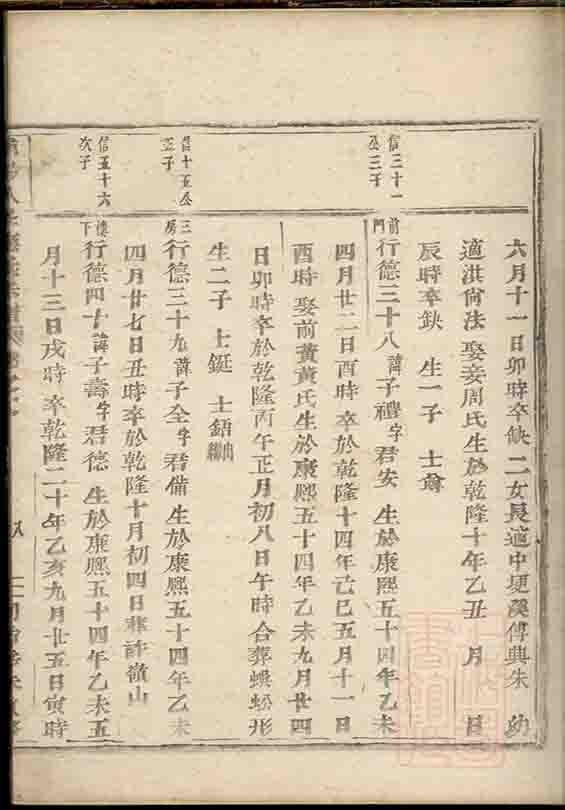 六月十一日卯時卒缺 二女長適中夏溪傅典朱 幼
適洪尙法 娶妾周氏生於乾隆十年乙丑 月 日
辰時卒缺 生一子 士
信三十一
公三子
前門行德三十八諱子禮字君安 生於康熙五十四年乙未
四月廿二日酉時 卒於乾隆十四年己巳五月十一日
酉時 娶前黃黃氏生於康熙五十四年乙未九月廿四
日卯時卒於乾隆丙午正月初八日午時合葬蜈蚣形
生二子 士鋌 士銆出繼
信十五公
三房行德三十九諱子全字君備 生於康熙五十四年乙未
四月廿七日丑時卒於乾隆十月初四日葬許嶺山
信五十六
次子
樓下行德四十諱子壽字君德 生於康熙五十四年乙未五
月十三日戌時 卒乾隆二十年乙亥九月廿五日寅時